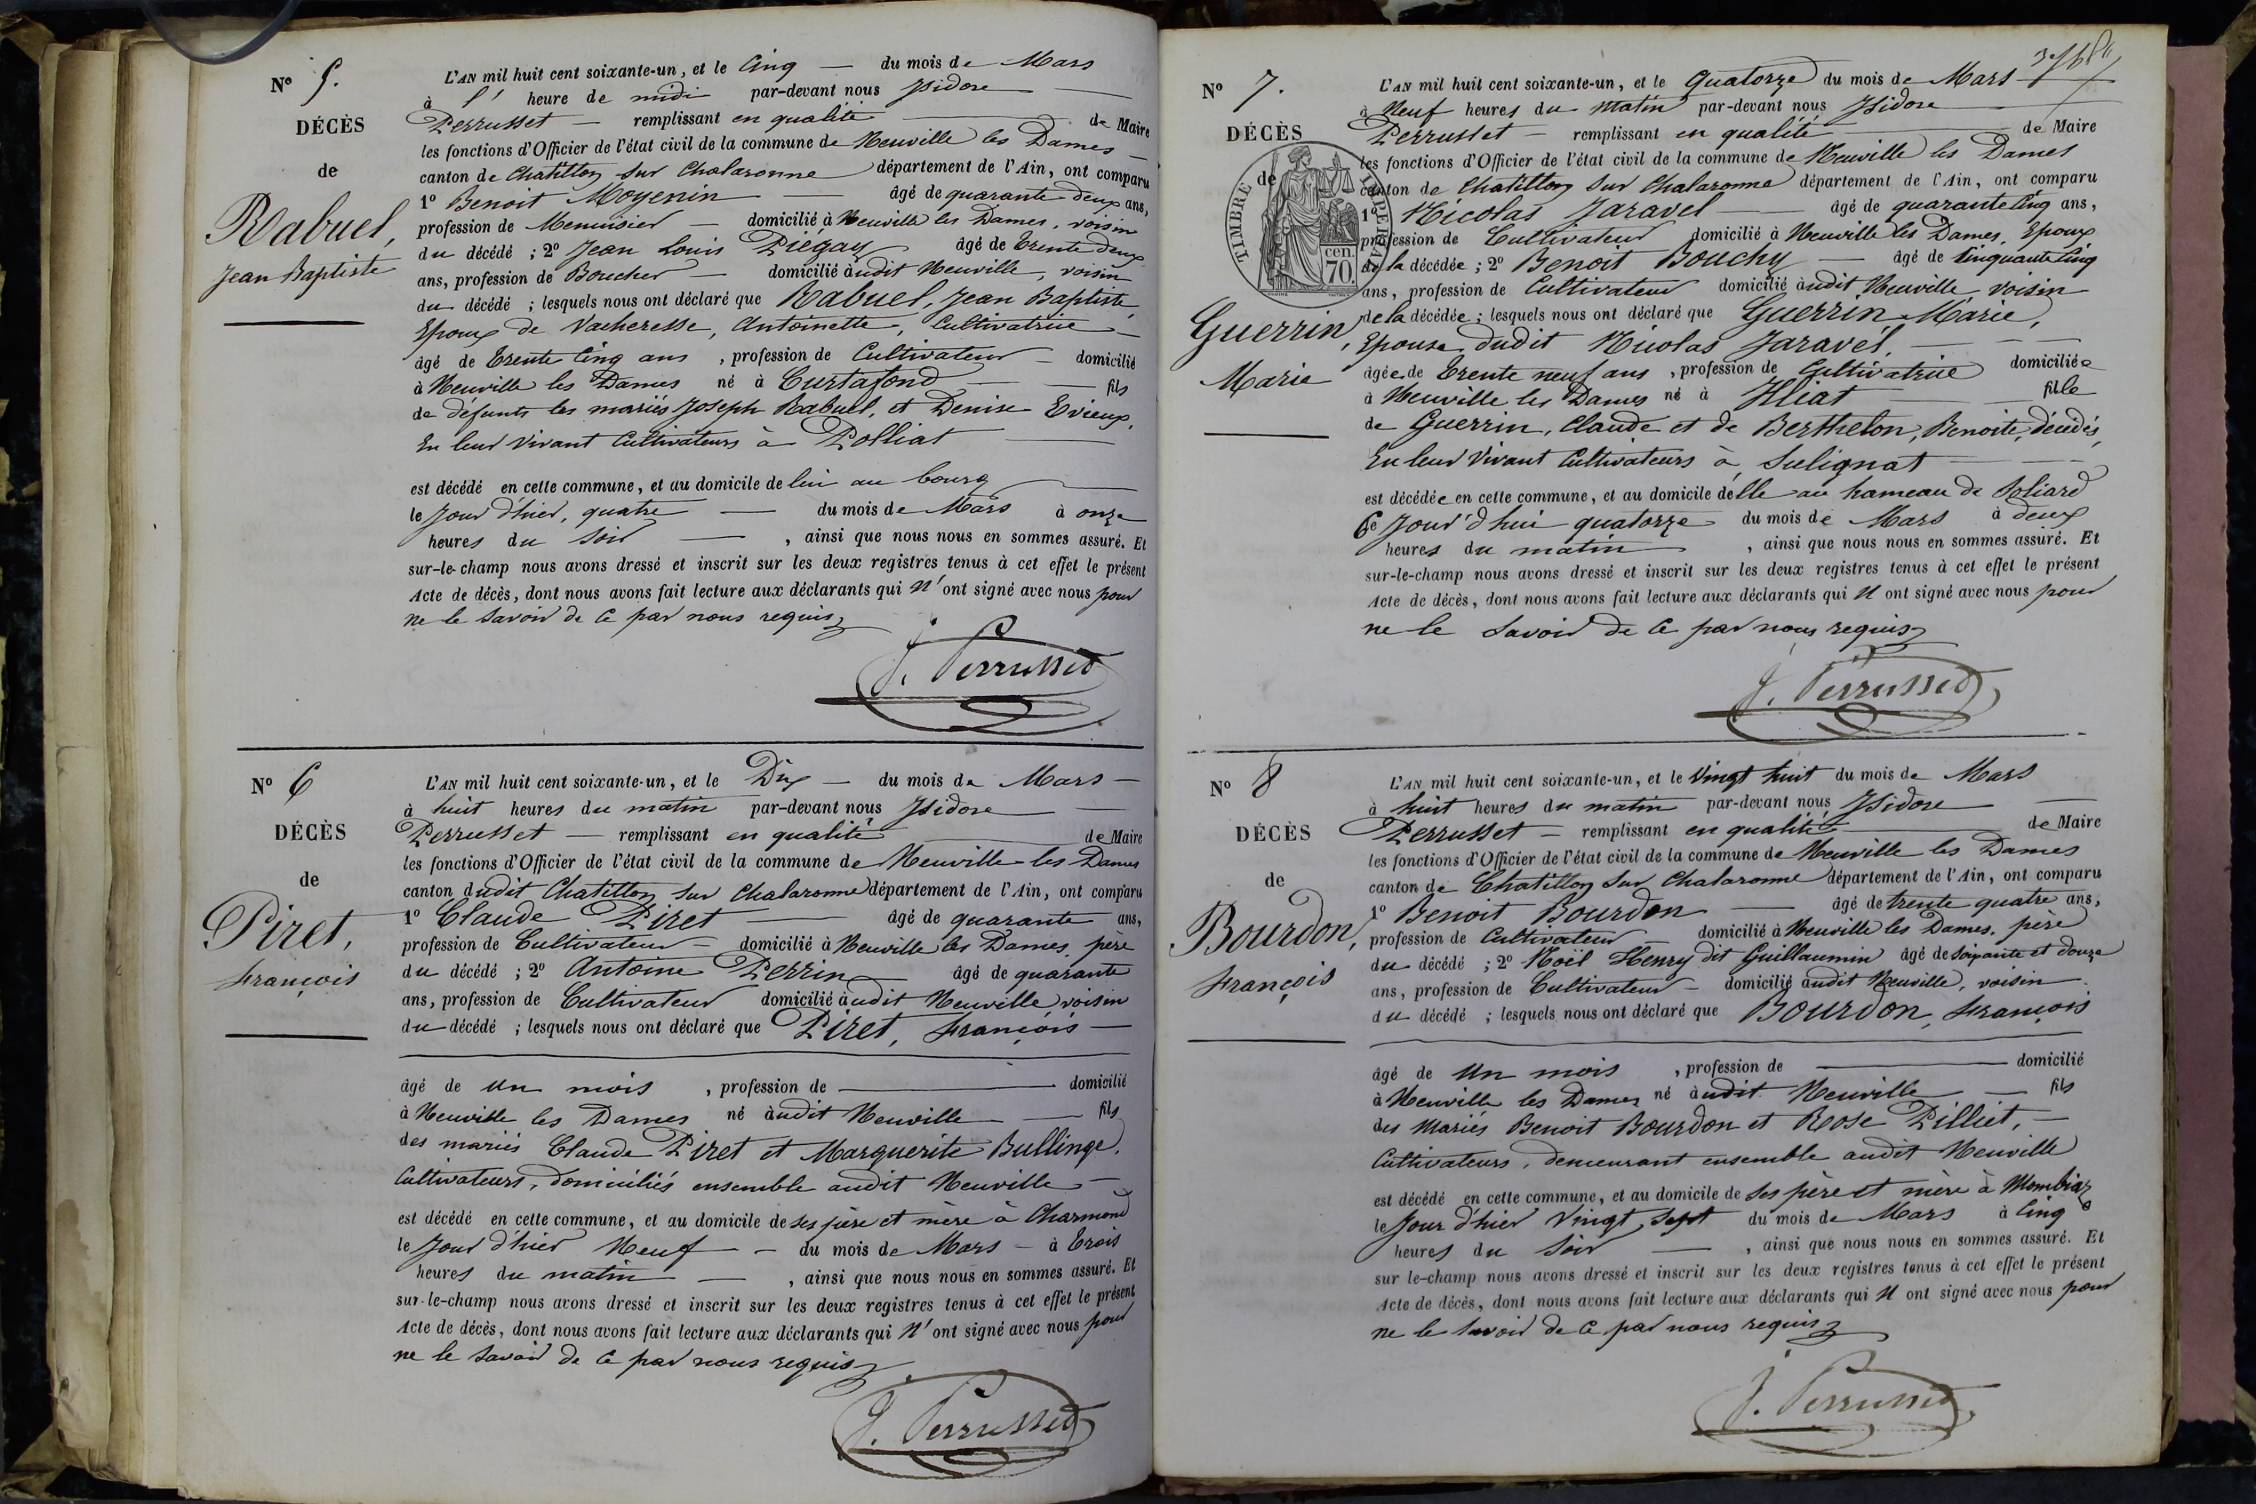 Nº 5.
DÉCÈS
de
Rabuel,
Jean Baptiste
L'AN mil huit cent soixante-un, et le Cinq — du mois de Mars
à l' heure de midi par-devant nous Isidore —
Perrusset — remplissant en qualité — de Maire
les fonctions d'Officier de l'état civil de la commune de Neuville les Dames —
canton de Chatillon sur Chalaronne département de l'Ain, ont comparu
1º Benoit Moyenin — âgé de quarante deux ans,
profession de Menuisier — domicilié à Neuville les Dames, voisin
du décédé ; 2º Jean Louis Piégay âgé de trente deux
ans, profession de Boucher — domicilié àudit Neuville, voisin
du décédé ; lesquels nous ont déclaré que Rabuel, Jean Baptiste,
Epoux de Vacheresse, Antoinette, Cultivatrice —
âgé de trente cinq ans , profession de Cultivateur — domicilié
à Neuville les Dames né à Curtafond — fils
de défunts les mariés Joseph Rabuel, et Denise Evieux,
En leur vivant Cultivateurs à Polliat
est décédé en cette commune, et au domicile de lui au bourg —
le Jour d'hier, quatre — du mois de Mars à onze
heures du soir — , ainsi que nous nous en sommes assuré. Et
sur-le-champ nous avons dressé et inscrit sur les deux registres tenus à cet effet le présent
Acte de décès, dont nous avons fait lecture aux déclarants qui n'ont signé avec nous pour
ne le savoir de ce par nous requis
J. Perrusset
Nº 6
DÉCÈS
de
Piret,
François
L'AN mil huit cent soixante-un, et le Dix — du mois de Mars —
à huit heures du matin par-devant nous Isidore —
Perrusset — remplissant en qualité — de Maire
les fonctions d'Officier de l'état civil de la commune de Neuville les Dames
canton dudit Chatillon sur Chalaronne département de l'Ain, ont comparu
1º Claude Piret — âgé de quarante ans,
profession de Cultivateur — domicilié à Neuville les Dames, père
du décédé ; 2º Antoine Perrin âgé de quarante
ans, profession de Cultivateur domicilié àudit Neuville, voisin
du décédé ; lesquels nous ont déclaré que Piret, François —
âgé de un mois , profession de — domicilié
à Neuville les Dames né àudit Neuville — fils
des mariés Claude Piret et Marguerite Bullinge,
Cultivateurs, domiciliés ensemble audit Neuville —
est décédé en cette commune, et au domicile de ses père et mère à Charmond
le Jour d'hier Neuf — du mois de Mars — à trois
heures du matin — , ainsi que nous nous en sommes assuré. Et
sur-le-champ nous avons dressé et inscrit sur les deux registres tenus à cet effet le présent
Acte de décès, dont nous avons fait lecture aux déclarants qui n'ont signé avec nous pour
ne le savoir de ce par nous requis
J. Perrusset
Nº 7.
DÉCÈS
de
TIMBRE IMPERIAL
cen.
70.
Guerrin,
Marie
L'AN mil huit cent soixante-un, et le quatorze du mois de Mars
à Neuf heures du matin par-devant nous Isidore —
Perrusset — remplissant en qualité — de Maire
les fonctions d'Officier de l'état civil de la commune de Neuville les Dames
canton de Chatillon sur Chalaronne département de l'Ain, ont comparu
1º Nicolas Jaravel — âgé de quarante cinq ans,
profession de Cultivateur domicilié à Neuville les Dames, Epoux
de la décédée ; 2º Benoit Bouchy — âgé de Cinquante Cinq
ans, profession de Cultivateur domicilié àudit Neuville voisin
de la décédée ; lesquels nous ont déclaré que Guerrin Marie,
Epouse dudit Nicolas Jaravel. —
âgée de trente neuf ans , profession de Cultivatrice domiciliée
à Neuville les Dames né à Illiat — fille
de Guerrin, Claude et de Berthelon, Benoite, décédés,
En leur vivant Cultivateurs à Sulignat —
est décédée en cette commune, et au domicile d'elle au hameau de Poliard
ce Jour d'hui quatorze du mois de Mars à deux
heures du matin , ainsi que nous nous en sommes assuré. Et
sur-le-champ nous avons dressé et inscrit sur les deux registres tenus à cet effet le présent
Acte de décès, dont nous avons fait lecture aux déclarants qui n'ont signé avec nous pour
ne le savoir de ce par nous requis
J. Perrusset
Nº 8
DÉCÈS
de
Bourdon,
François
L'AN mil huit cent soixante-un, et le vingt huit du mois de Mars
à huit heures du matin par-devant nous Isidore —
Perrusset — remplissant en qualité — de Maire
les fonctions d'Officier de l'état civil de la commune de Neuville les Dames
canton de Chatillon sur Chalaronne département de l'Ain, ont comparu
1º Benoit Bourdon — âgé de trente quatre ans,
profession de Cultivateur — domicilié à Neuville les Dames, père
du décédé ; 2º Noël Henry dit Guillaumin âgé de soixante et douze
ans, profession de Cultivateur — domicilié àudit Neuville, voisin
du décédé ; lesquels nous ont déclaré que Bourdon, François
âgé de un mois , profession de — domicilié
à Neuville les Dames né àudit Neuville — fils
des Mariés Benoit Bourdon et Rose Pilliet, —
Cultivateurs, demeurant ensemble audit Neuville
est décédé en cette commune, et au domicile de ses père et mère à Mombiaz
le Jour d'hier Vingt Sept du mois de Mars à Cinq
heures du Soir — , ainsi que nous nous en sommes assuré. Et
sur le-champ nous avons dressé et inscrit sur les deux registres tenus à cet effet le présent
Acte de décès, dont nous avons fait lecture aux déclarants qui n'ont signé avec nous pour
ne le savoir de ce par nous requis
J. Perrusset